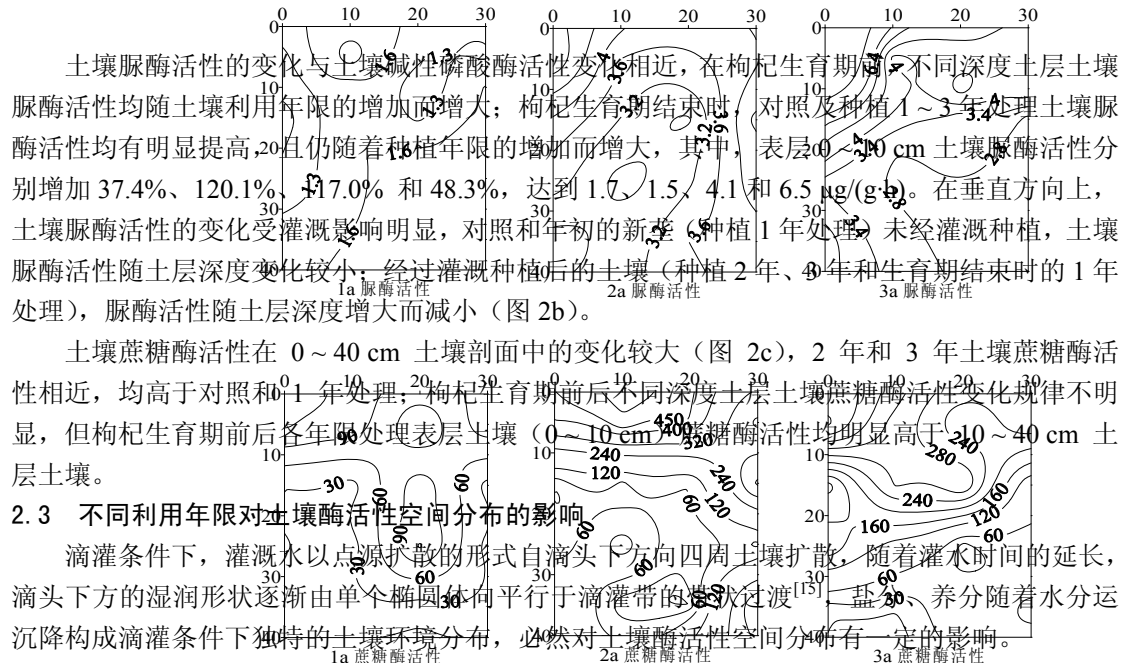 0 10 20 30 0 10 20 30 0 10 20 30
土壤脲酶活性的变化与土壤碱性磷酸酶活性变化相近，在枸杞生育期前，不同深度土层土壤
脲酶活性均随土壤利用年限的增加而增大；枸杞生育期结束时，对照及种植 1 ~ 3 年处理土壤脲
酶活性均有明显提高，且仍随着种植年限的增加而增大，其中，表层 0 ~ 10 cm 土壤脲酶活性分
别增加 37.4%、120.1%、117.0% 和 48.3%，达到 1.7、1.5、4.1 和 6.5 μg/(g·h)。在垂直方向上，
土壤脲酶活性的变化受灌溉影响明显，对照和年初的新垄（种植 1 年处理）未经灌溉种植，土壤
脲酶活性随土层深度变化较小；经过灌溉种植后的土壤（种植 2 年、3 年和生育期结束时的 1 年
1a 脲酶活性 2a 脲酶活性 3a 脲酶活性
处理），脲酶活性随土层深度增大而减小（图 2b）。
土壤蔗糖酶活性在 0 ~ 40 cm 土壤剖面中的变化较大（图 2c），2 年和 3 年土壤蔗糖酶活
0 10 20 30 0 10 20 30 0 10 20 30
性相近，均高于对照和 1 年处理；枸杞生育期前后不同深度土层土壤蔗糖酶活性变化规律不明
显，但枸杞生育期前后各年限处理表层土壤（0 ~ 10 cm）蔗糖酶活性均明显高于 10 ~ 40 cm 土
层土壤。
2.3 不同利用年限对土壤酶活性空间分布的影响
滴灌条件下，灌溉水以点源扩散的形式自滴头下方向四周土壤扩散，随着灌水时间的延长，
滴头下方的湿润形状逐渐由单个椭圆体向平行于滴灌带的带状过渡[15]，盐分、养分随着水分运
沉降构成滴灌条件下独特的土壤环境分布，必然对土壤酶活性空间分布有一定的影响。
1a 蔗糖酶活性 2a 蔗糖酶活性 3a 蔗糖酶活性